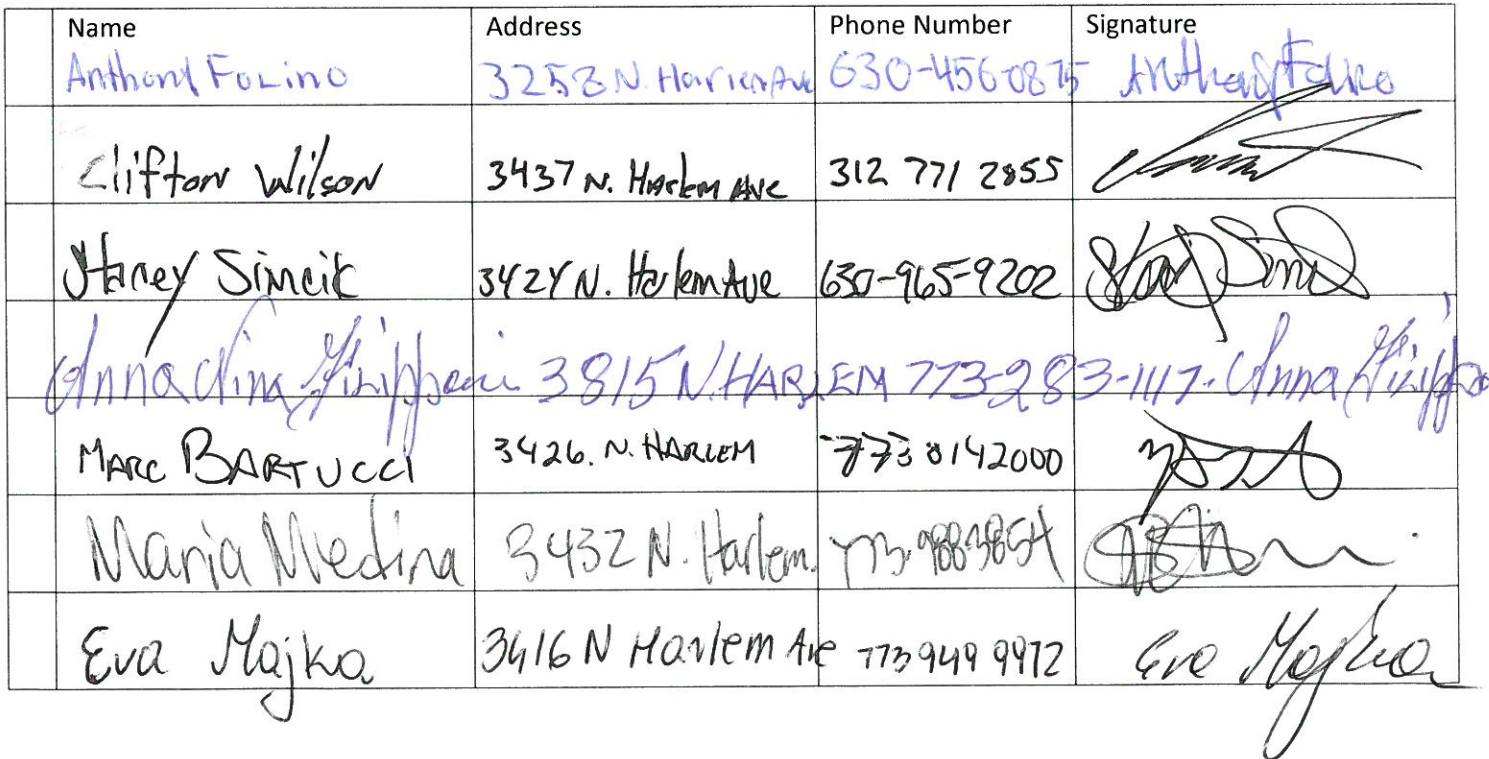 Name Address Phone Number Signature
Anthony Folino 3258 N. Harlem Ave 630-456-0875 Anthony Folino
Clifton Wilson 3437 N. Harlem Ave 312 771 2855
Stacey Simcik 3424 N. Harlem Ave 630-965-9202
Anna Nina 3815 N. HARLEM 773-283-1117 Anna
MARC BARTUCCI 3426 N. HARLEM 773 8142000
Maria Medina 3432 N. Harlem. 773-9883854
Eva Majka 3416 N Harlem Ave 773 949 9972 Eva Majka